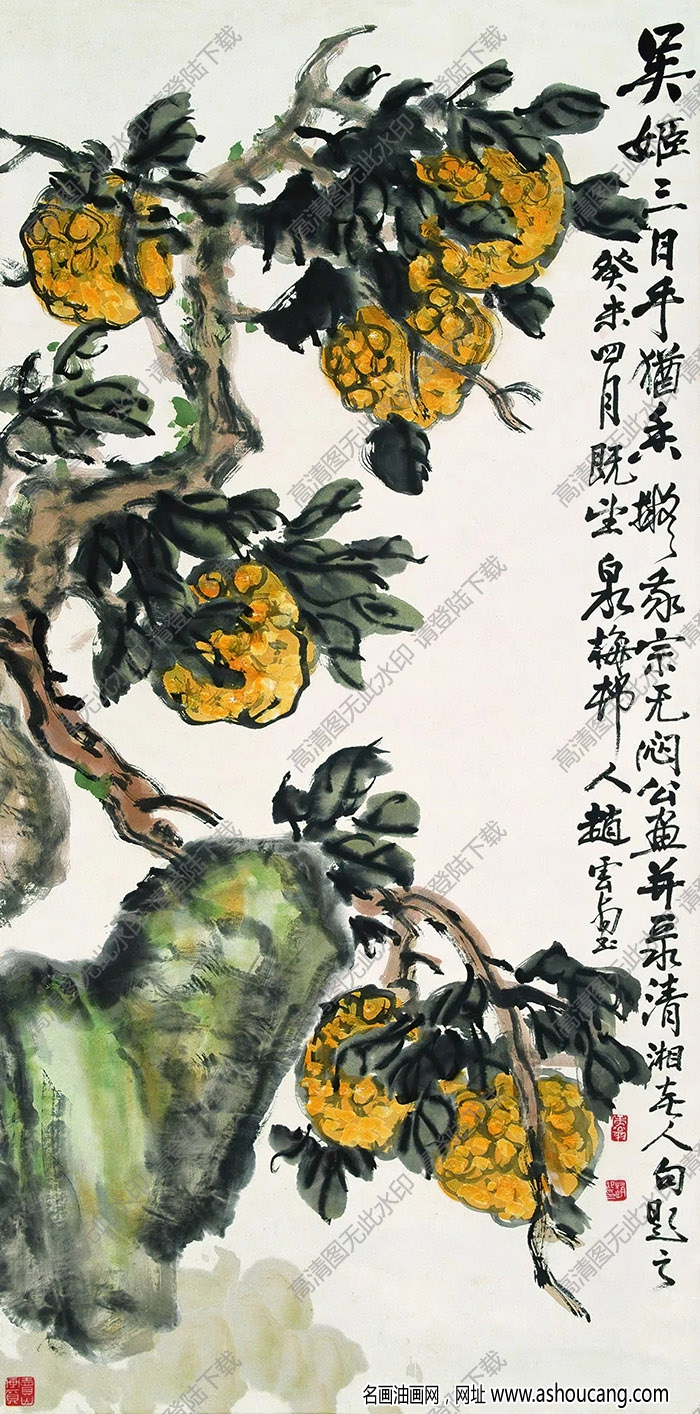 吴姬三日手犹香擬我宗无闷公画并录清湘老人句题之
癸未四月既望泉梅邨人趙雲壑
高清图无此水印 请登陆下载
名画油画网，网址 www.ashoucang.com